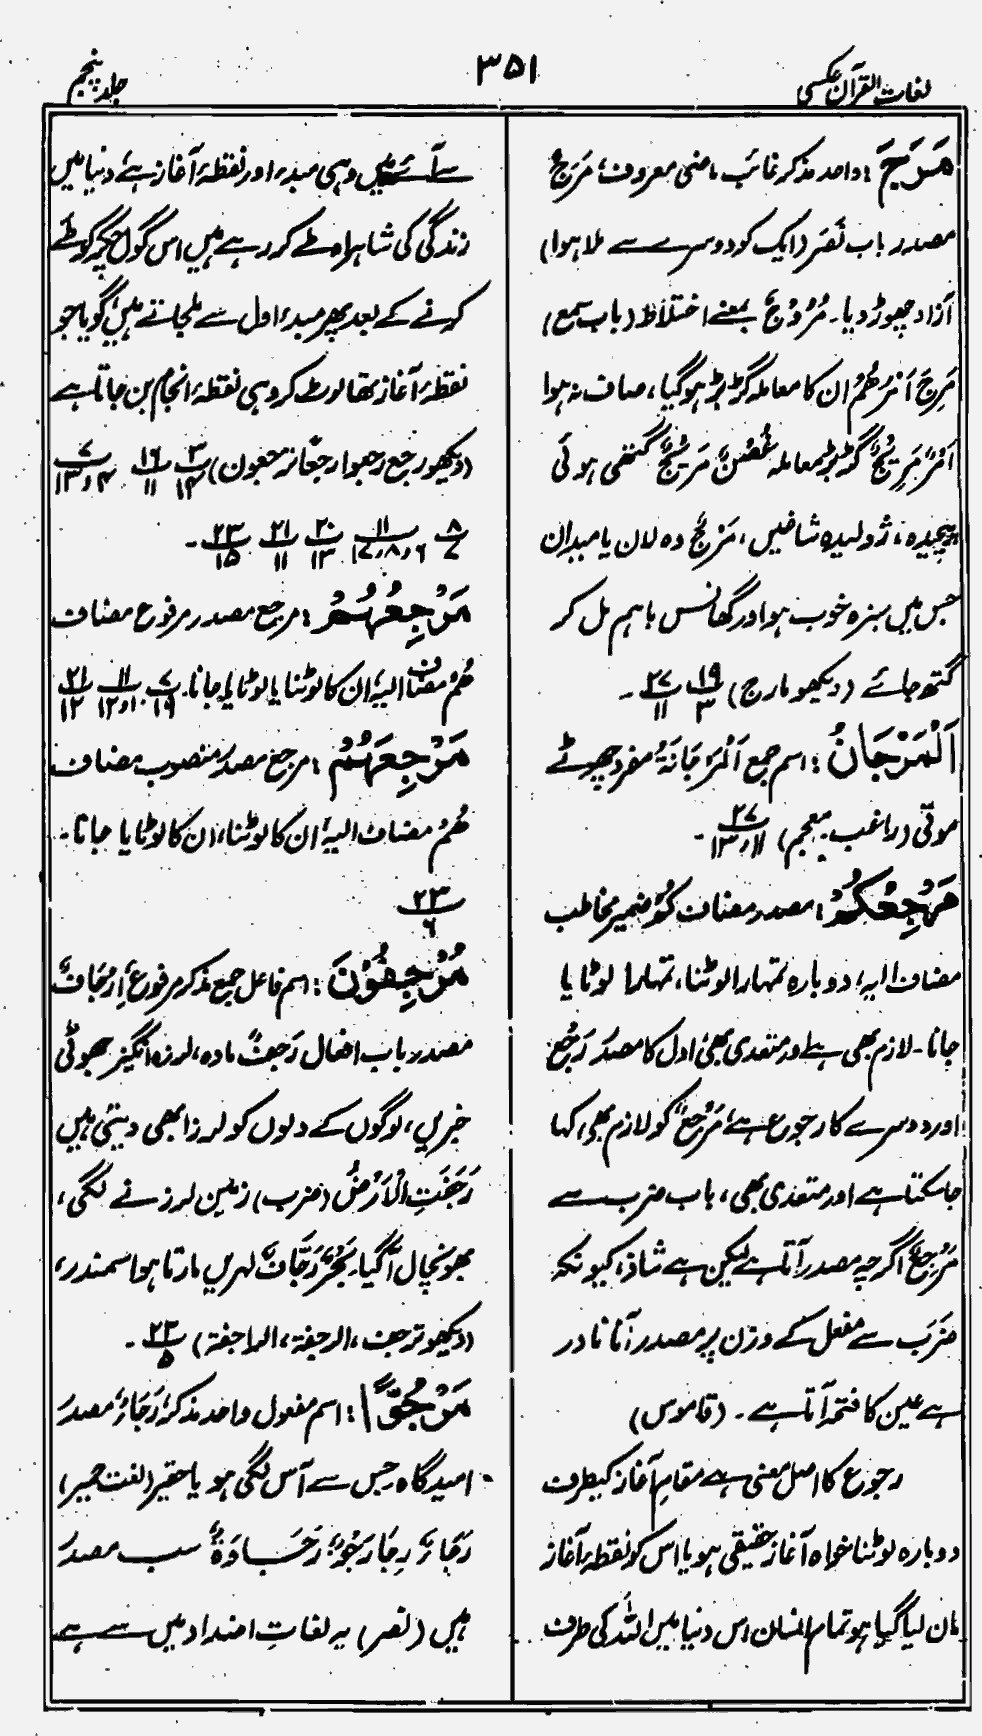 لغات القرآن عکسی
۳۵۱
جلد پنجم
مَرَجَ : واحد مذکر غائب ماضی معروف، مَرَجٌ
مصدر باب نَصَرَ (ایک کو دوسرے سے ملا ہوا)
آزاد چھوڑ دیا۔ مُرُوْجٌ بمعنے اختلاط (باب سمع)
مَرِجَ اَمْرُهُمْ ان کا معاملہ گڑبڑ ہوگیا، صاف نہ ہوا
اَمْرٌ مَرِیْجٌ گڑبڑ معاملہ غُصْنٌ مَرِیْجٌ گتھی ہوئی
پیچیدہ، ژولیدہ شاخیں، مَرْجٌ دہ لان یا میدان
جس میں سبزہ خوب ہو اور گھانس باہم مل کر
گتھ جائے (دیکھو مارج) ۱۹/۳ ۲۷/۱۱ ۔
اَلْمَرْجَانُ : اسم جمع اَلْمَرْجَانَةُ مفرد چھوٹے
موتی (راغب، معجم) ۲۷/۱۱،۱۳ ۔
مَرْجِعُكُمْ : مصدر مضاف کُمْ ضمیر مخاطب
مضاف الیہ، دوبارہ تمہارا لوٹنا، تمہارا لوٹایا
جانا۔ لازم بھی ہے اور متعدی بھی، اول کا مصدر رَجْعٌ
اور دوسرے کا رجوع ہے، مَرْجِعٌ کو لازم بھی کہا
جاسکتا ہے اور متعدی بھی، باب ضرب سے
مَرْجِعٌ اگرچہ مصدر آتا ہے لیکن ہے شاذ، کیونکہ
ضَرَبَ سے مفعل کے وزن پر مصدر آنا نادر
ہے عین کا فتحہ آتا ہے۔ (قاموس)
رجوع کا اصل معنی ہے مقامِ آغاز کیطرف
دوبارہ لوٹنا خواہ آغاز حقیقی ہو یا اس کو نقطۂ آغاز
مان لیا گیا ہو تمام انسان اس دنیا میں اللہ کی طرف
سے آئے ہیں وہی مبدء اور نقطۂ آغاز ہے دنیا میں
زندگی کی شاہراہ طے کر رہے ہیں اس گول چکر کو طے
کرنے کے بعد پھر مبدء اول سے ملجاتے ہیں، گویا جو
نقطۂ آغاز تھا لوٹ کر وہی نقطۂ انجام بن جاتا ہے
(دیکھو رجع رجعوا رجعا ترجعون) ۳/۱۴ ۱۶/۱۱ ۷/۴،۱۳
۸/۷ ۱۱/۶،۸،۱۷ ۲۰/۱۳ ۲۱/۱۱ ۲۳/۱۵ ۔
مَرْجِعُهُمْ : مرجع مصدر مرفوع مضاف
هُمْ مضاف الیہ، ان کا لوٹنا یا لوٹایا جانا۔ ۷/۱۹ ۱۱/۱۰،۱۲ ۲۱/۱۲
مَرْجِعَهُمْ : مرجع مصدر منصوب مضاف
هُمْ مضاف الیہ، ان کا لوٹنا، ان کا لوٹایا جانا۔
۲۳/۶
مُرْجِفُوْنَ : اسم فاعل جمع مذکر مرفوع، اِرْجَافٌ
مصدر باب افعال رَجْفٌ مادہ، لرزہ انگیز جھوٹی
خبریں، لوگوں کے دلوں کو لرزا بھی دیتی ہیں
رَجَفَتِ الْاَرْضُ (ضرب) زمین لرزنے لگی،
بھونچال آگیا۔ بَحْرٌ رَجَّافٌ لہریں مارتا ہوا سمندر،
(دیکھو ترجف، الرجفة، الراجفة) ۲۳/۵ ۔
مَرْجُوًّا : اسم مفعول واحد مذکر، رَجَاءٌ مصدر
امیدگاہ جس سے آس لگی ہو یا حقیر (لغت حمیر)
رَجَاءٌ، رَجَا، رَجْوٌ، رَجَاوَةٌ سب مصدر
ہیں (نصر) یہ لغاتِ اضداد میں سے ہے